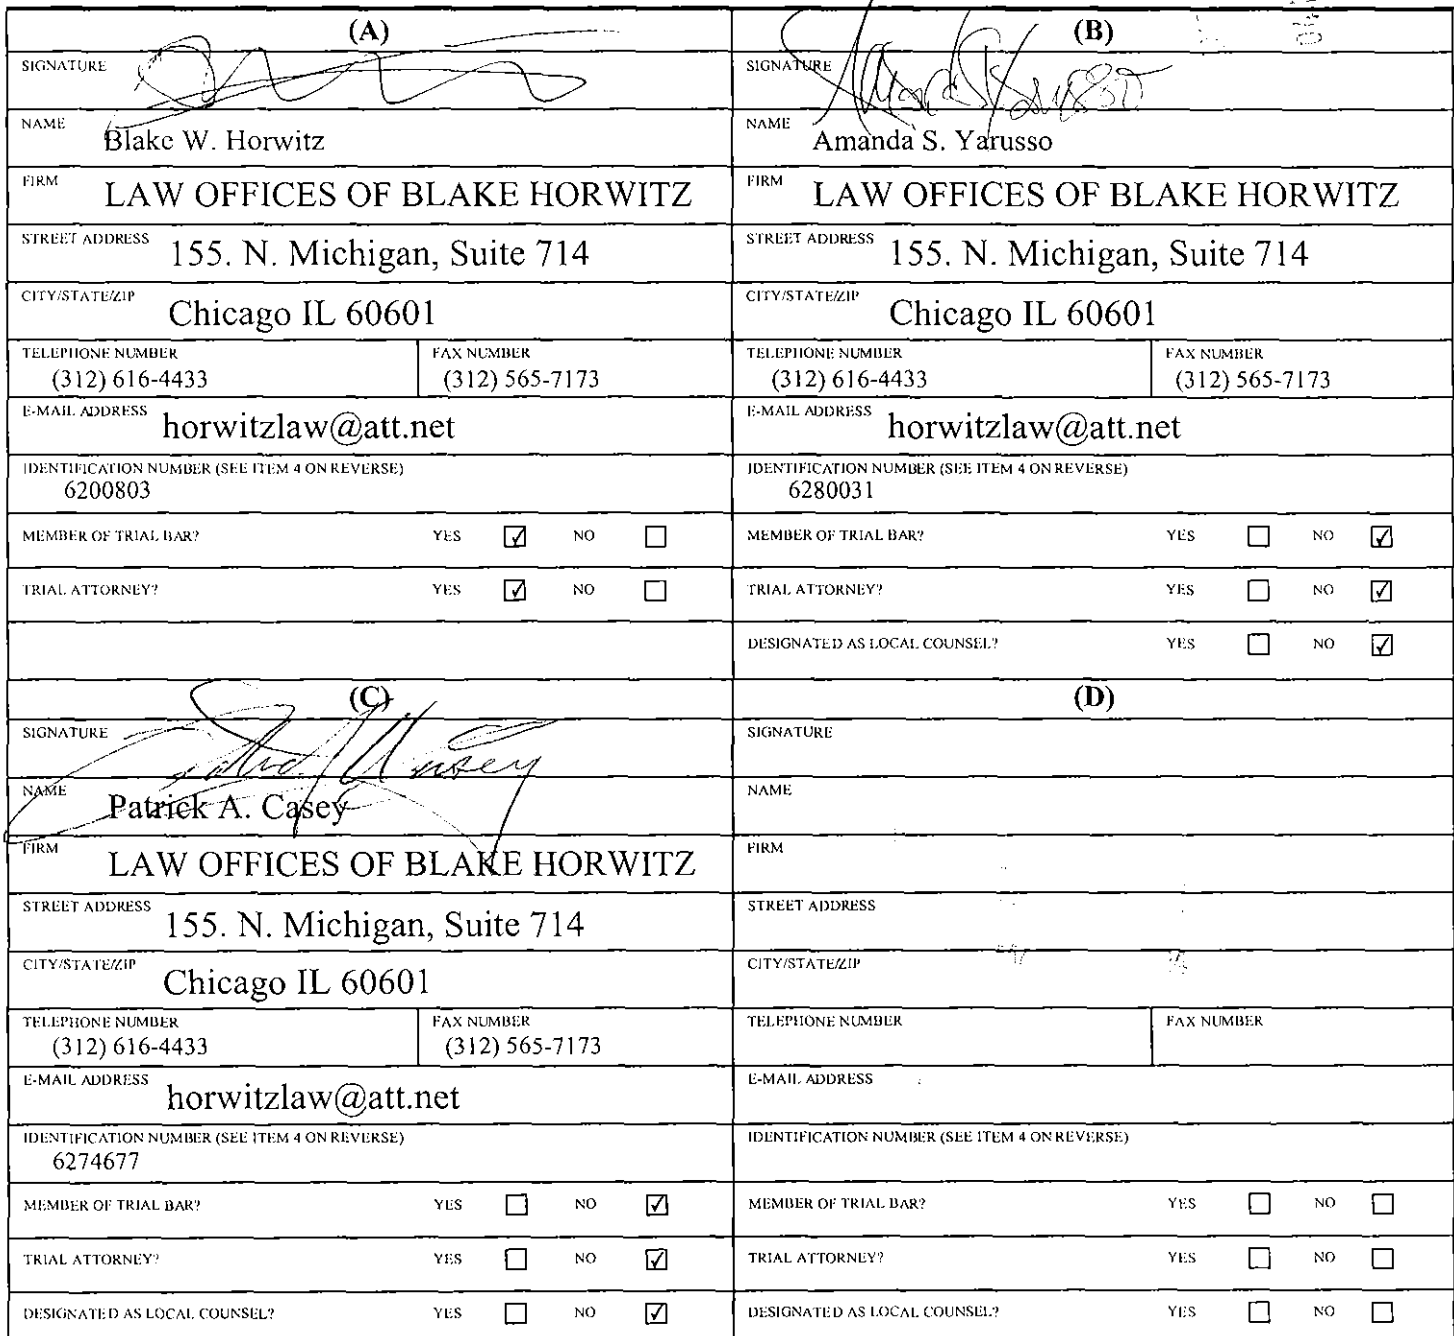 (A)
SIGNATURE
NAME Blake W. Horwitz
FIRM LAW OFFICES OF BLAKE HORWITZ
STREET ADDRESS 155. N. Michigan, Suite 714
CITY/STATE/ZIP Chicago IL 60601
TELEPHONE NUMBER FAX NUMBER
(312) 616-4433 (312) 565-7173
E-MAIL ADDRESS horwitzlaw@att.net
IDENTIFICATION NUMBER (SEE ITEM 4 ON REVERSE)
6200803
MEMBER OF TRIAL BAR? YES ☑ NO ☐
TRIAL ATTORNEY? YES ☑ NO ☐
(B)
SIGNATURE Amanda S Yarusso
NAME Amanda S. Yarusso
FIRM LAW OFFICES OF BLAKE HORWITZ
STREET ADDRESS 155. N. Michigan, Suite 714
CITY/STATE/ZIP Chicago IL 60601
TELEPHONE NUMBER FAX NUMBER
(312) 616-4433 (312) 565-7173
E-MAIL ADDRESS horwitzlaw@att.net
IDENTIFICATION NUMBER (SEE ITEM 4 ON REVERSE)
6280031
MEMBER OF TRIAL BAR? YES ☐ NO ☑
TRIAL ATTORNEY? YES ☐ NO ☑
DESIGNATED AS LOCAL COUNSEL? YES ☐ NO ☑
(C)
SIGNATURE
NAME Patrick A. Casey
FIRM LAW OFFICES OF BLAKE HORWITZ
STREET ADDRESS 155. N. Michigan, Suite 714
CITY/STATE/ZIP Chicago IL 60601
TELEPHONE NUMBER FAX NUMBER
(312) 616-4433 (312) 565-7173
E-MAIL ADDRESS horwitzlaw@att.net
IDENTIFICATION NUMBER (SEE ITEM 4 ON REVERSE)
6274677
MEMBER OF TRIAL BAR? YES ☐ NO ☑
TRIAL ATTORNEY? YES ☐ NO ☑
DESIGNATED AS LOCAL COUNSEL? YES ☐ NO ☑
(D)
SIGNATURE
NAME
FIRM
STREET ADDRESS
CITY/STATE/ZIP
TELEPHONE NUMBER FAX NUMBER
E-MAIL ADDRESS
IDENTIFICATION NUMBER (SEE ITEM 4 ON REVERSE)
MEMBER OF TRIAL BAR? YES ☐ NO ☐
TRIAL ATTORNEY? YES ☐ NO ☐
DESIGNATED AS LOCAL COUNSEL? YES ☐ NO ☐